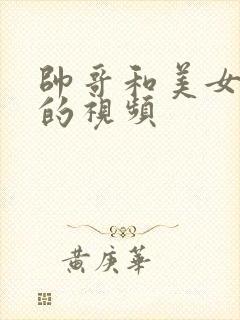 帥哥和美女
的視頻
黃庚華